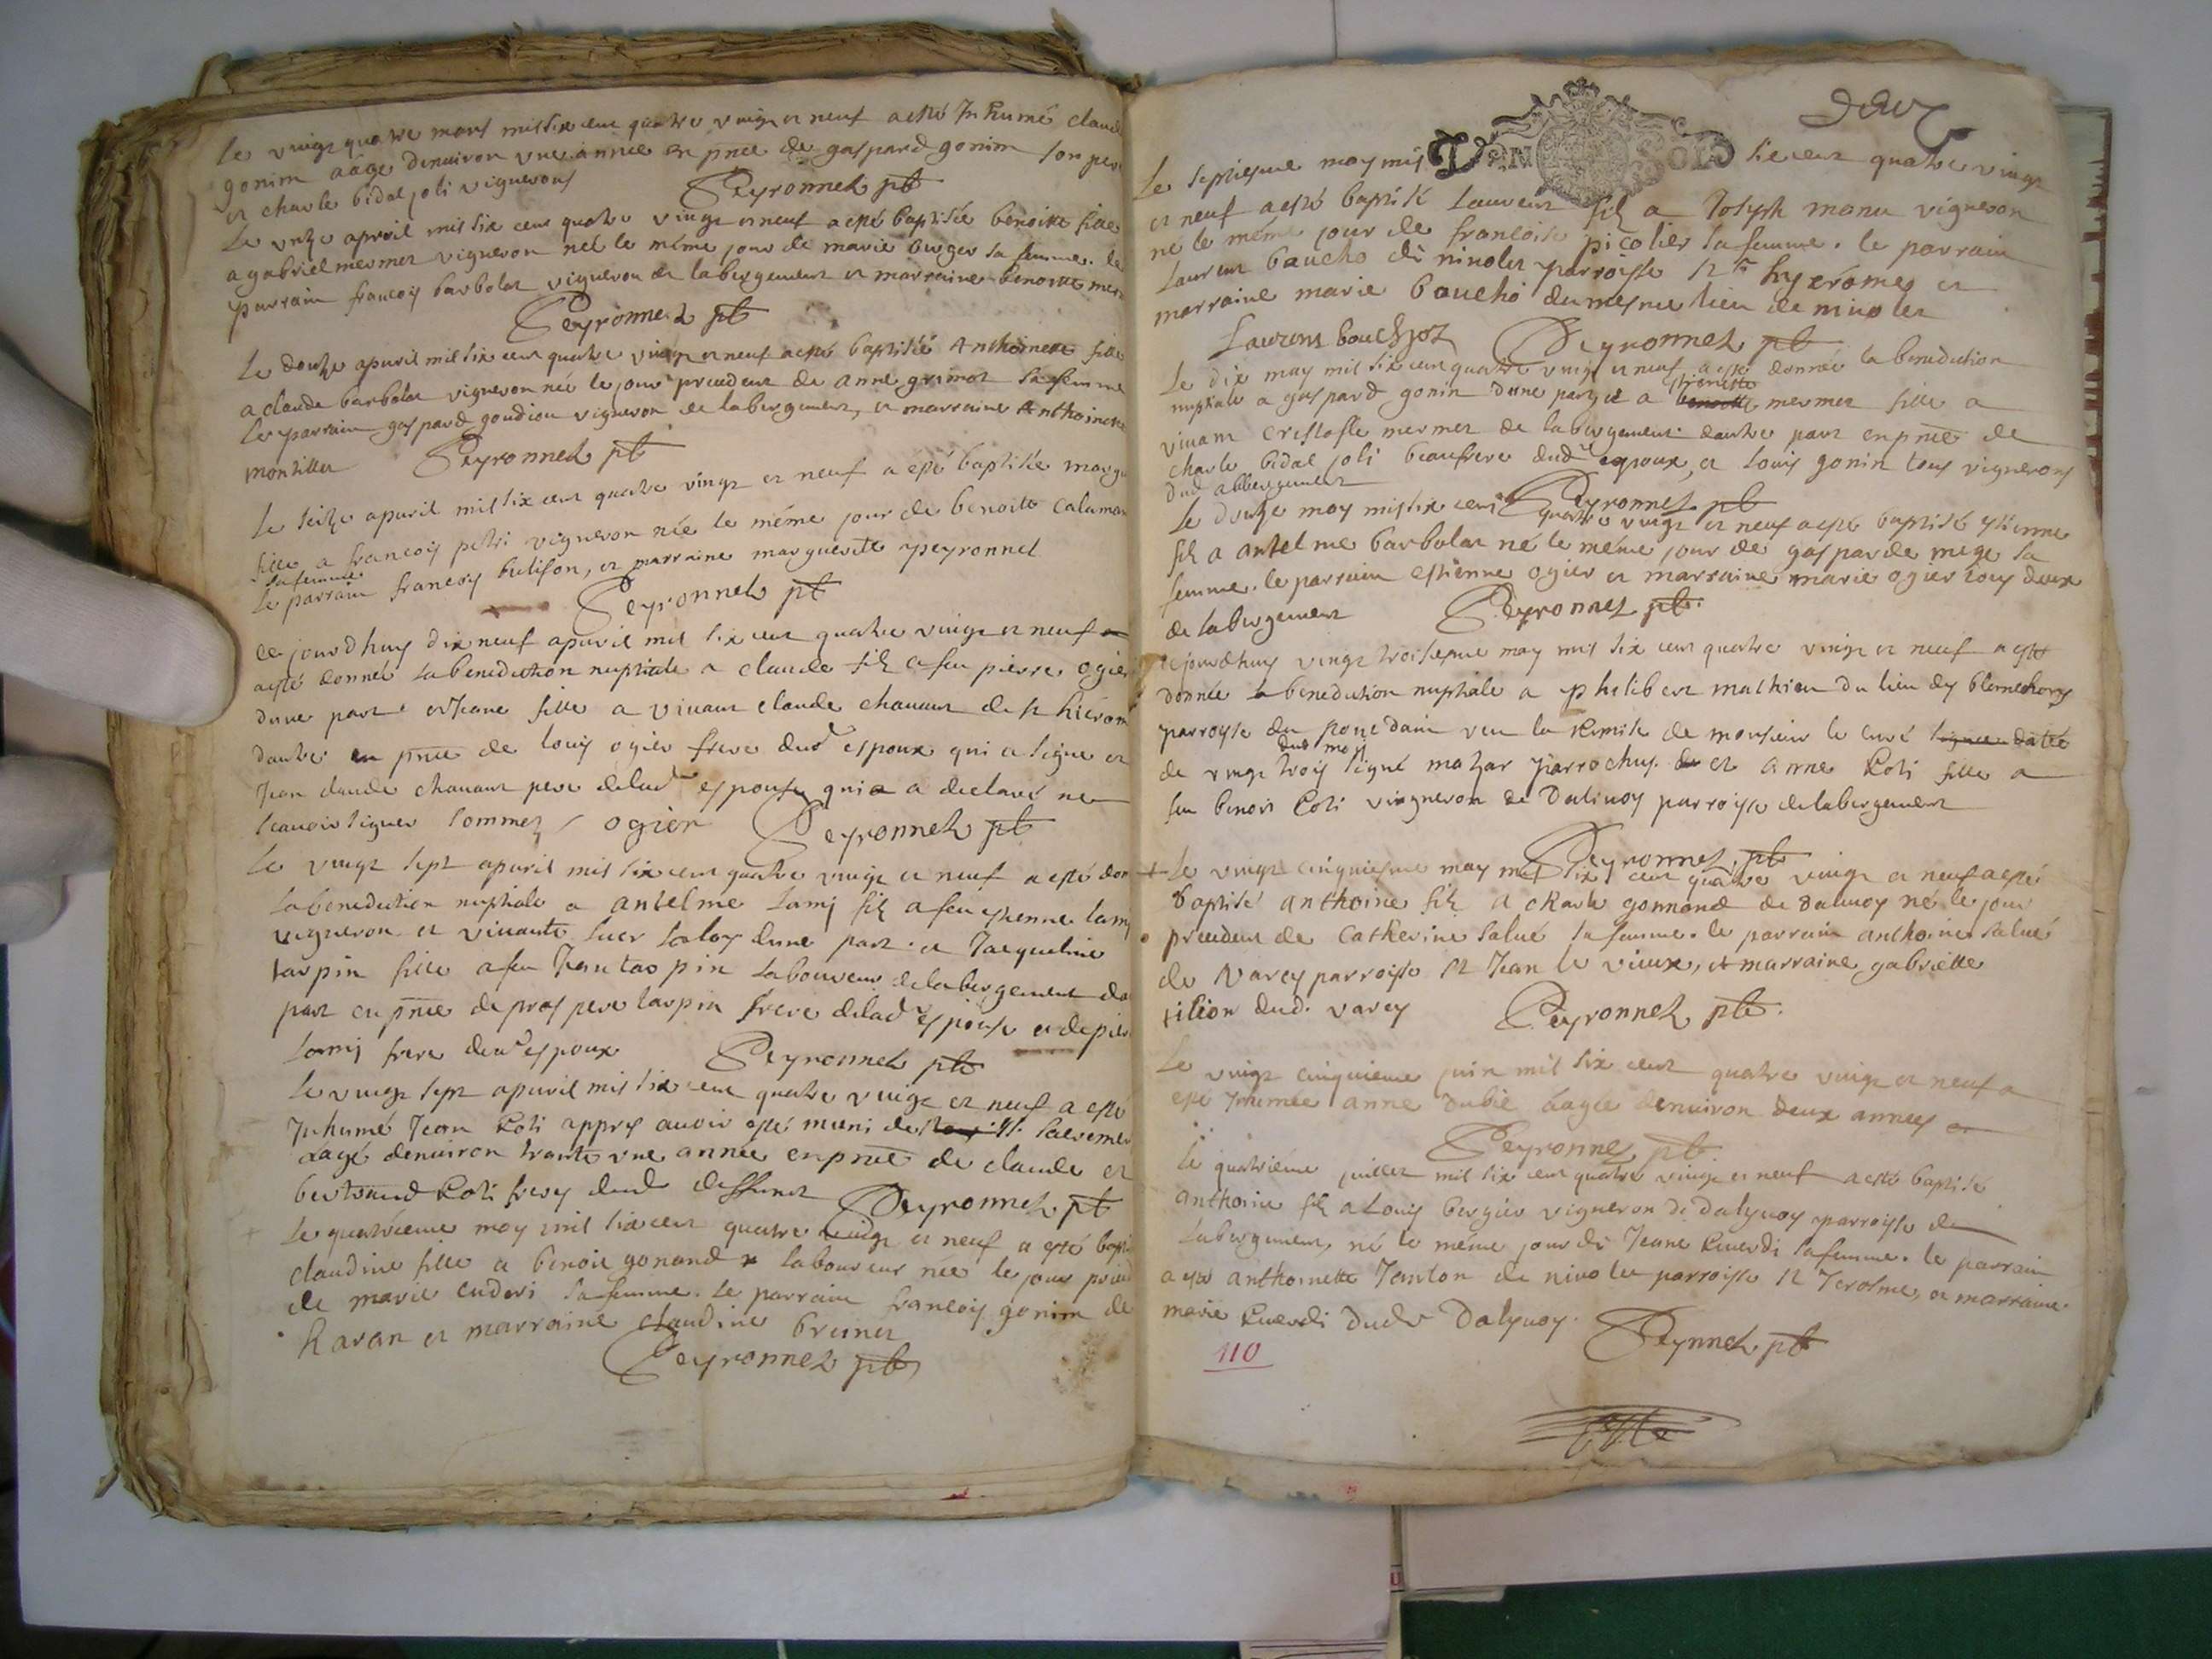 Le vingt quatre mars mil six cent quatre vingt et neuf a esté Inhumé claud
gonim aâge denuiron vne année en pnce de gaspard gonim son pere
et charle bidal joli vignerons Peyronnet pb
Le vnze apvril mil six cent quatre vingt et neuf a esté baptisée benoitte fille
a gabriel mermet vigneron neé le même jour de marie burger sa femme. le
parrain francois barbolat vigneron de labergement et marraine benoitte mer
Peyronnet pb
Le douze apuril mil six cent quatre vingt et neuf a esté baptisée Anthoinette fille
a claude barbolat vigneron née le jour precedent de anne grimot sa femme
Le parrain gaspard goudiou vigneron de labergement, et marraine Anthoinette
montillet Peyronnet pb
Le seize apuril mil six cent quatre vingt et neuf a esté baptisée margu
fille a francois petri vigneron née le même jour de benoite calaman
sa femme
Le parrain francois bulison, et marraine marguerite peyronnet
Peyronnet pb
ce jourdhuy dix neuf apuril mil six cent quatre vingt et neuf
a esté donneé la benediction nuptiale a claude filz a feu pierre ogier
dune part et Jeane fille a viuant claude chauant de st hierom
dautre en pnce de louis ogier frere dud espoux qui a signe et
Jean claude chauant pere de lad espouse qui a declaré ne
scauoir signer sommez / ogier Peyronnet pb
Le vingt sept apuril mil six cent quatre vingt et neuf a esté don
la benediction nuptiale a antelme lamj filz a feu estienne lamj
vigneron et viuante sœur dune part. et Jacqueline
tarpin fille a feu Jean tarpin laboureur de labergement da
part en pnce de prospere tarpin frere de lad espouse et de pier
lamj frere dud espoux Peyronnet pb
Le vingt sept apuril mil six cent quatre vingt et neuf a esté
Inhumé Jean Koli appres auoir esté muni des sts sacremen
aagé denuiron trante vne année en pnce de claude et
bertrand Koli freres dud deffunct Peyronnet pb
Le quatriême may mil six cent quatre vingt et neuf a esté bapti
claudine fille a benoit gonand laboureur née le jour preced
de marie sa femme. Le parrain francois gonim de
haran et marraine claudine brunet
Peyronnet pb
deux
DEUX SOLS
Le septiesme may mil six cent quatre vingt
et neuf a esté baptisé laurent filz a Joseph manu vigneron
né le même jour de francoise picolier sa femme. le parrain
laurent baucho di niuolet parroisse st hyerôme et
marraine marie baucho du mesme lieu de niuolet
Laurens bouchot Peyronnet pb
Le dix may mil six cent quatre vingt et neuf a esté donnée la benediction
nuptiale a gaspard gonin dune part et a mermet fille a
viuant cristofle mermet de labergement dautre part en pnce de
charle bidal joli beaufrere dud espoux, et louis gonin tous vignerons
dud abbergement
Peyronnet pb
Le douze may mil six cent quatre vingt et neuf a esté baptisé estienne
filz a antelme barbolat né le même jour de gasparde mege sa
femme. le parrain estienne ogier et marraine marie ogier tous deux
de labergement Peyronnet pb.
cejourdhuy vingt troisiesme may mil six cent quatre vingt et neuf a esté
donnée la benediction nuptiale a philibert mathieu du lieu des blanchons
parroisse du poncdain veu la remise de monsieur le curé signee datée
dud moy
de vingt trois signé mazar parrochus. et anne Koli fille a
feu benoit Koli vingneron de daliuoy parroisse de labergement
Peyronnet pb
+ Le vingt cinquiesme may mil six cent quatre vingt et neuf a esté
baptisé anthoine filz a charle gonnand de daliuoy né le jour
precedent de Catherine salué sa femme. le parrain anthoine salué
de Varey parroisse st Jean le vieux, et marraine gabrielle
tilion dud. varey Peyronnet pb.
Le vingt cinquieme juin mil six cent quatre vingt et neuf a
esté Inhumée anne dubié eagée denuiron deux années
Peyronnet pb
Le quatriême juillet mil six cent quatre vingt et neuf a esté baptisé
anthoine filz a Louis bergier vigneron di dalyuoy parroisse de
Labergement, né le même jour di Jeane Kuerdi sa femme. le parrain
a esté anthoinette Janton de niuolet parroisse st Jerosme, et marraine
marie Kuerdi dud dalyuoy. Peynnet pb
110